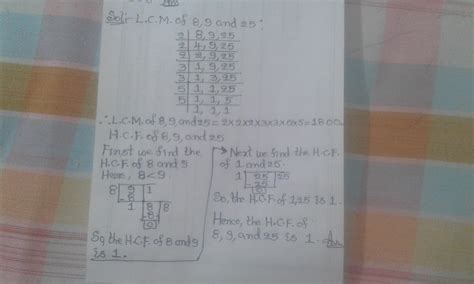 Ans
Sol:- L.C.M. of 8, 9 and 25:
2 | 8, 9, 25
2 | 4, 9, 25
2 | 2, 9, 25
3 | 1, 9, 25
3 | 1, 3, 25
5 | 1, 1, 25
5 | 1, 1, 5
1, 1, 1
∴ L.C.M. of 8, 9 and 25 = 2×2×2×3×3×5×5 = 1800
H.C.F. of 8, 9, and 25
First we find the
H.C.F. of 8 and 9
Here, 8<9
8 | 9 | 1
-8
1 | 8 | 8
-8
0
So, the H.C.F. of 8 and 9
is 1.
Next we find the H.C.F.
of 1 and 25.
1 | 25 | 25
-25
0
So, the H.C.F. of 1, 25 is 1.
Hence, the H.C.F. of
8, 9, and 25 is 1. Ans